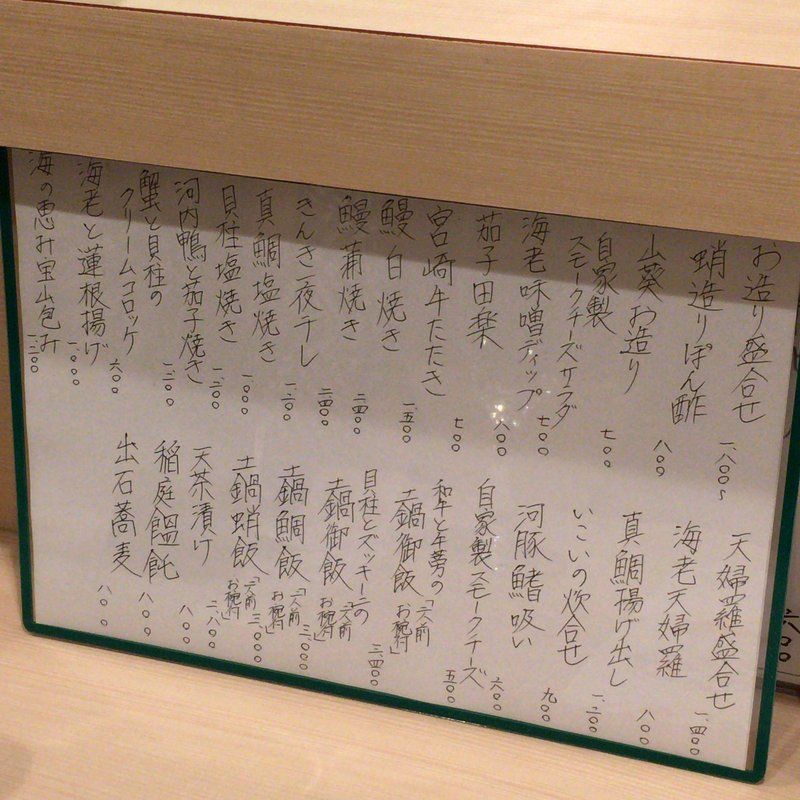 お造り盛合せ 一、八〇〇〜
蛸造りぽん酢 八〇〇
山葵お造り 七〇〇
自家製
スモークチーズサラダ 八〇〇
海老味噌ディップ 七〇〇
茄子田楽 七〇〇
宮崎牛たたき 一、五〇〇
鰻白焼き 二四〇〇
鰻蒲焼き 二四〇〇
きんき一夜干し
真鯛塩焼き 一、〇〇〇
貝柱塩焼き 一、二〇〇
河内鴨と茄子焼き 一、二〇〇
蟹と貝柱の
クリームコロッケ 六〇〇
海老と蓮根揚げ 一、〇〇〇
海の恵み宝山包み 一、二〇〇
天婦羅盛合せ 一、四〇〇
海老天婦羅 八〇〇
真鯛揚げ出し 一、二〇〇
いこいの炊合せ 九〇〇
河豚鰭吸い 六〇〇
自家製スモークチーズ 五〇〇
和牛と牛蒡の
土鍋御飯 「二人前お椀付」 三、四〇〇
貝柱とズッキーニの
土鍋御飯 「二人前お椀付」 三、〇〇〇
土鍋鯛飯 「二人前お椀付」 三、〇〇〇
土鍋蛸飯 「二人前お椀付」 二、八〇〇
天茶漬け 八〇〇
稲庭饂飩 八〇〇
出石蕎麦 八〇〇